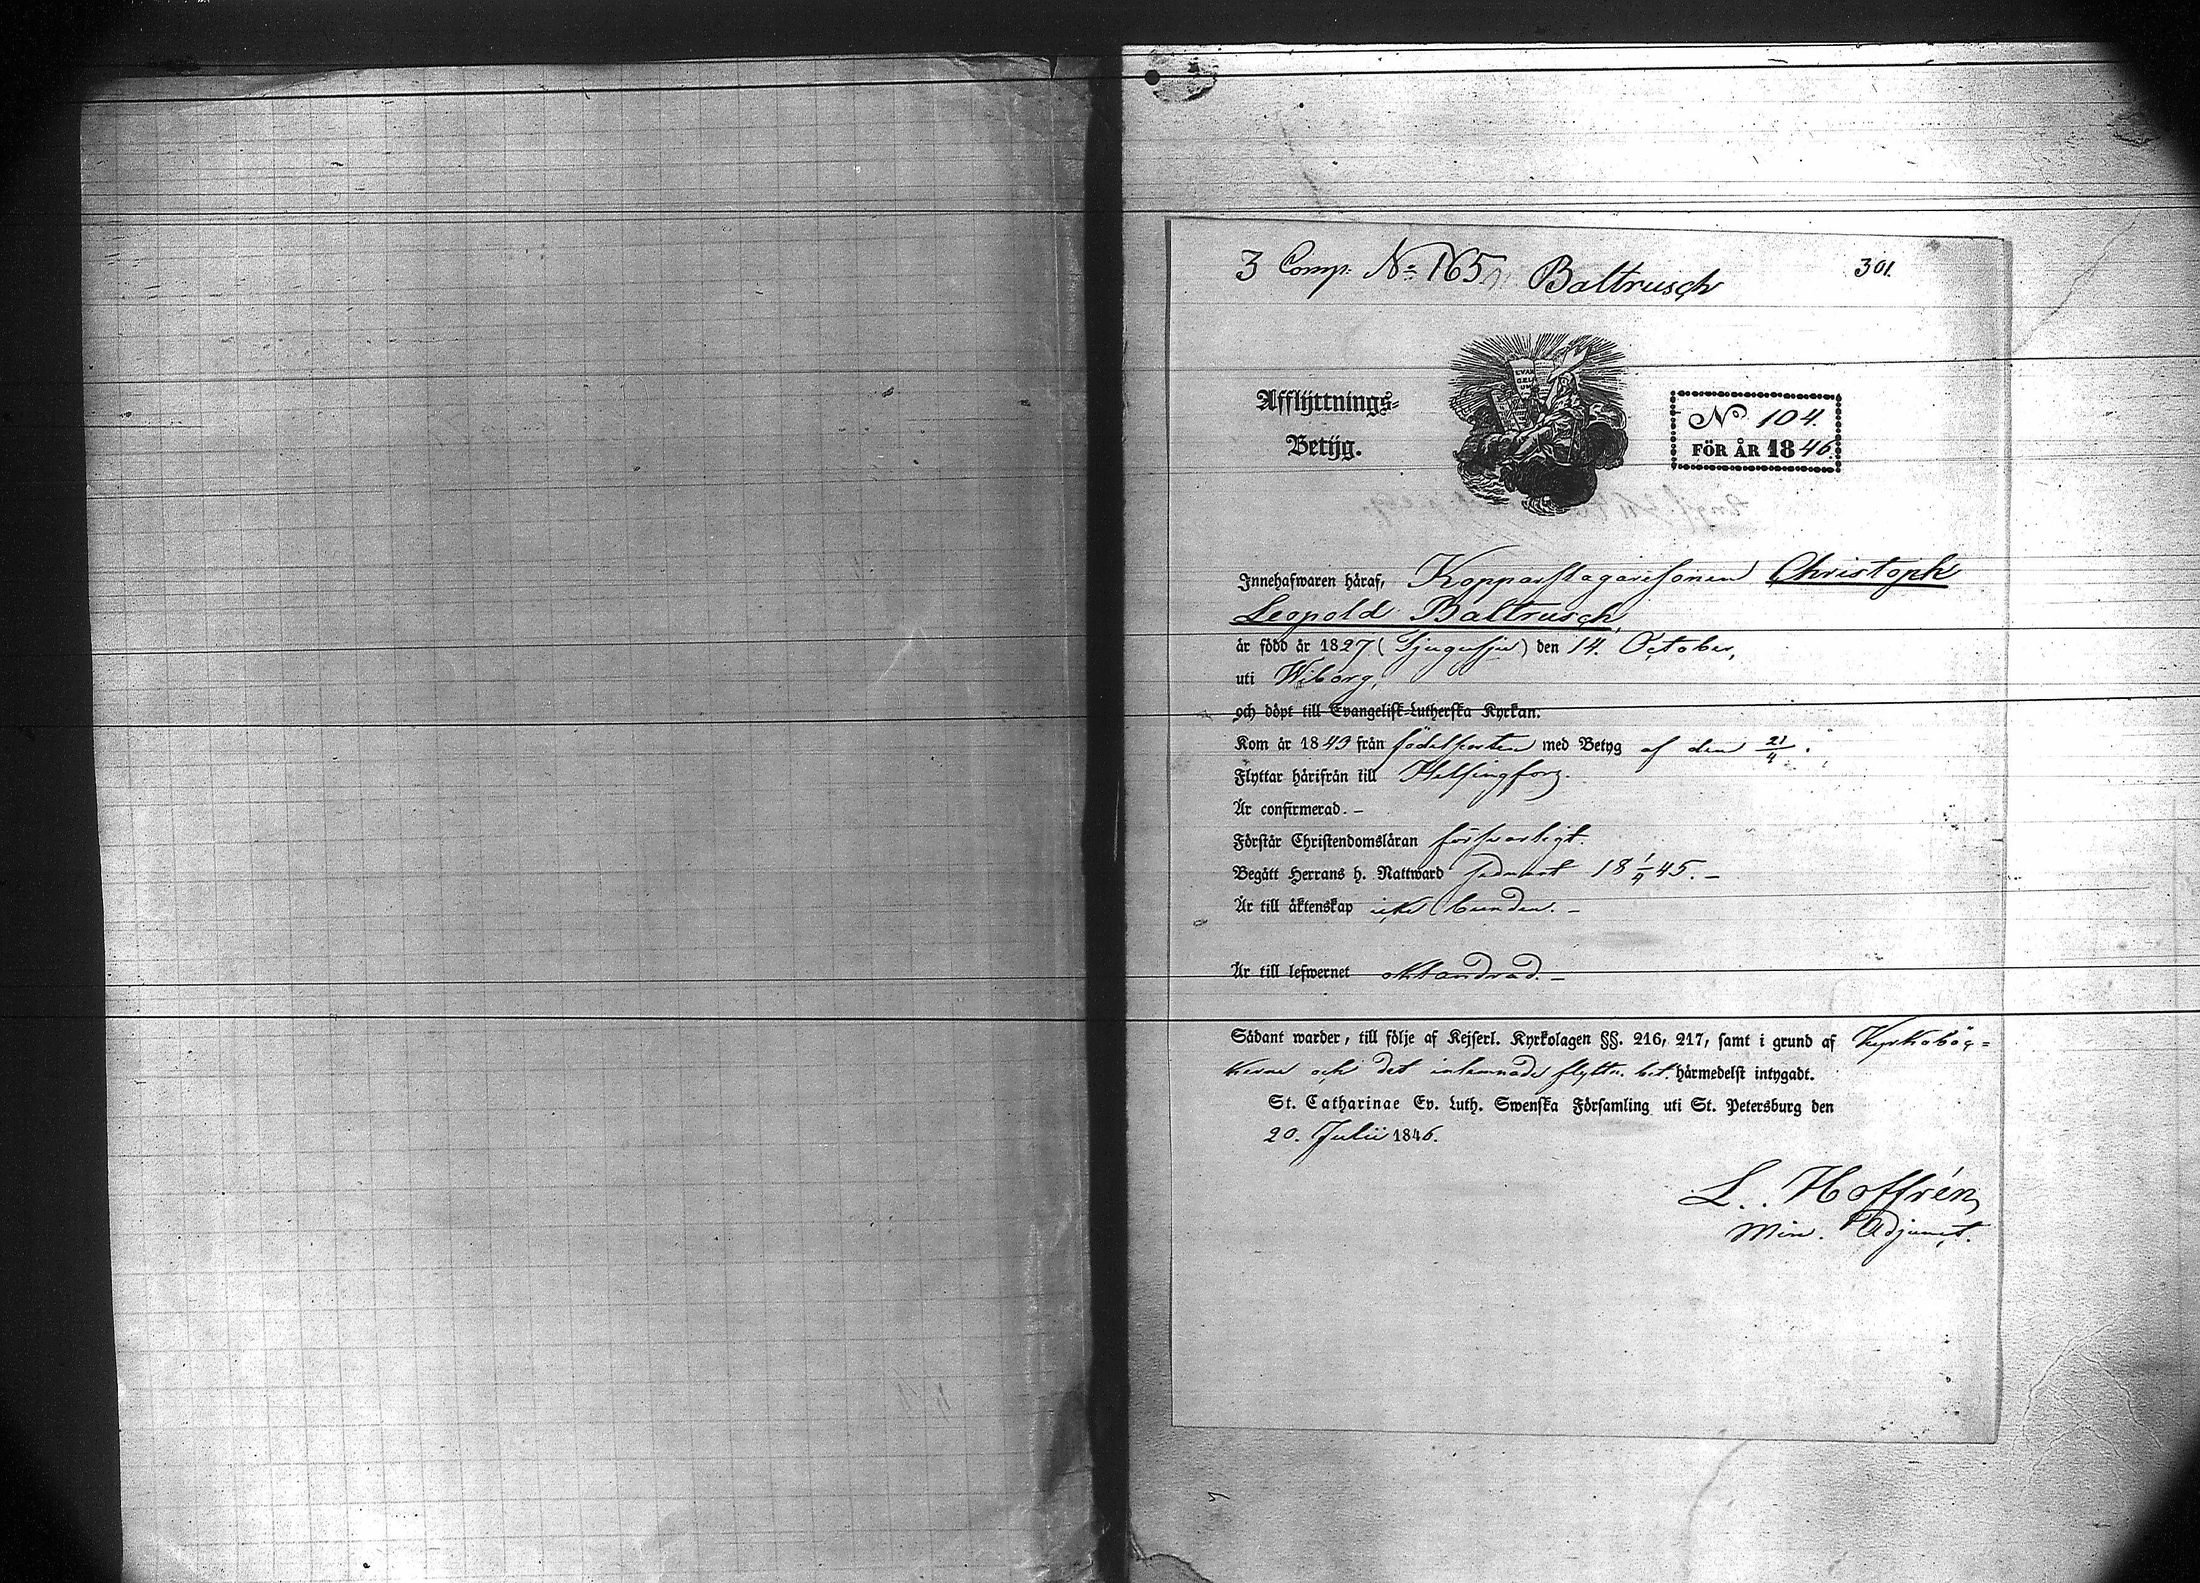 3 Comp. No 165 Baltrusch 301.
Afflÿttnings=
Betÿg.
EVAN
GELI
UM
No 104.
FÖR ÅR 1846.
Innehafwaren håraf, Kopparslagaresonen Christoph
Leopold Baltrusch,
år född år 1827 (Tjugusju) den 14. October,
uti Wiborg,
och döpt till Evangelisk-Lutherska Kyrkan.
Kom år 1843 från födelseorten med Betyg af den 21/4.
Flyttar hårifrån till Helsingfors.
Är confirmerad. –
Förstår Christendomslåran försvarligt.
Begått Herrans h. Nattward sednast 18 1/4 45. –
Är till åktenskap icke bunden. –
Är till lefwernet oklandrad. –
Sådant warder, till följe af Kejserl. Kyrkolagen §§. 216, 217, samt i grund af Kyrkoböc=
kerne och det inlemnade flyttn. bet. hårmedelst intygadt.
St. Catharinae Ev. Luth. Swenska Församling uti St. Petersburg den
20. Julii 1846.
L. Hoffrén
Min. Adjunct.